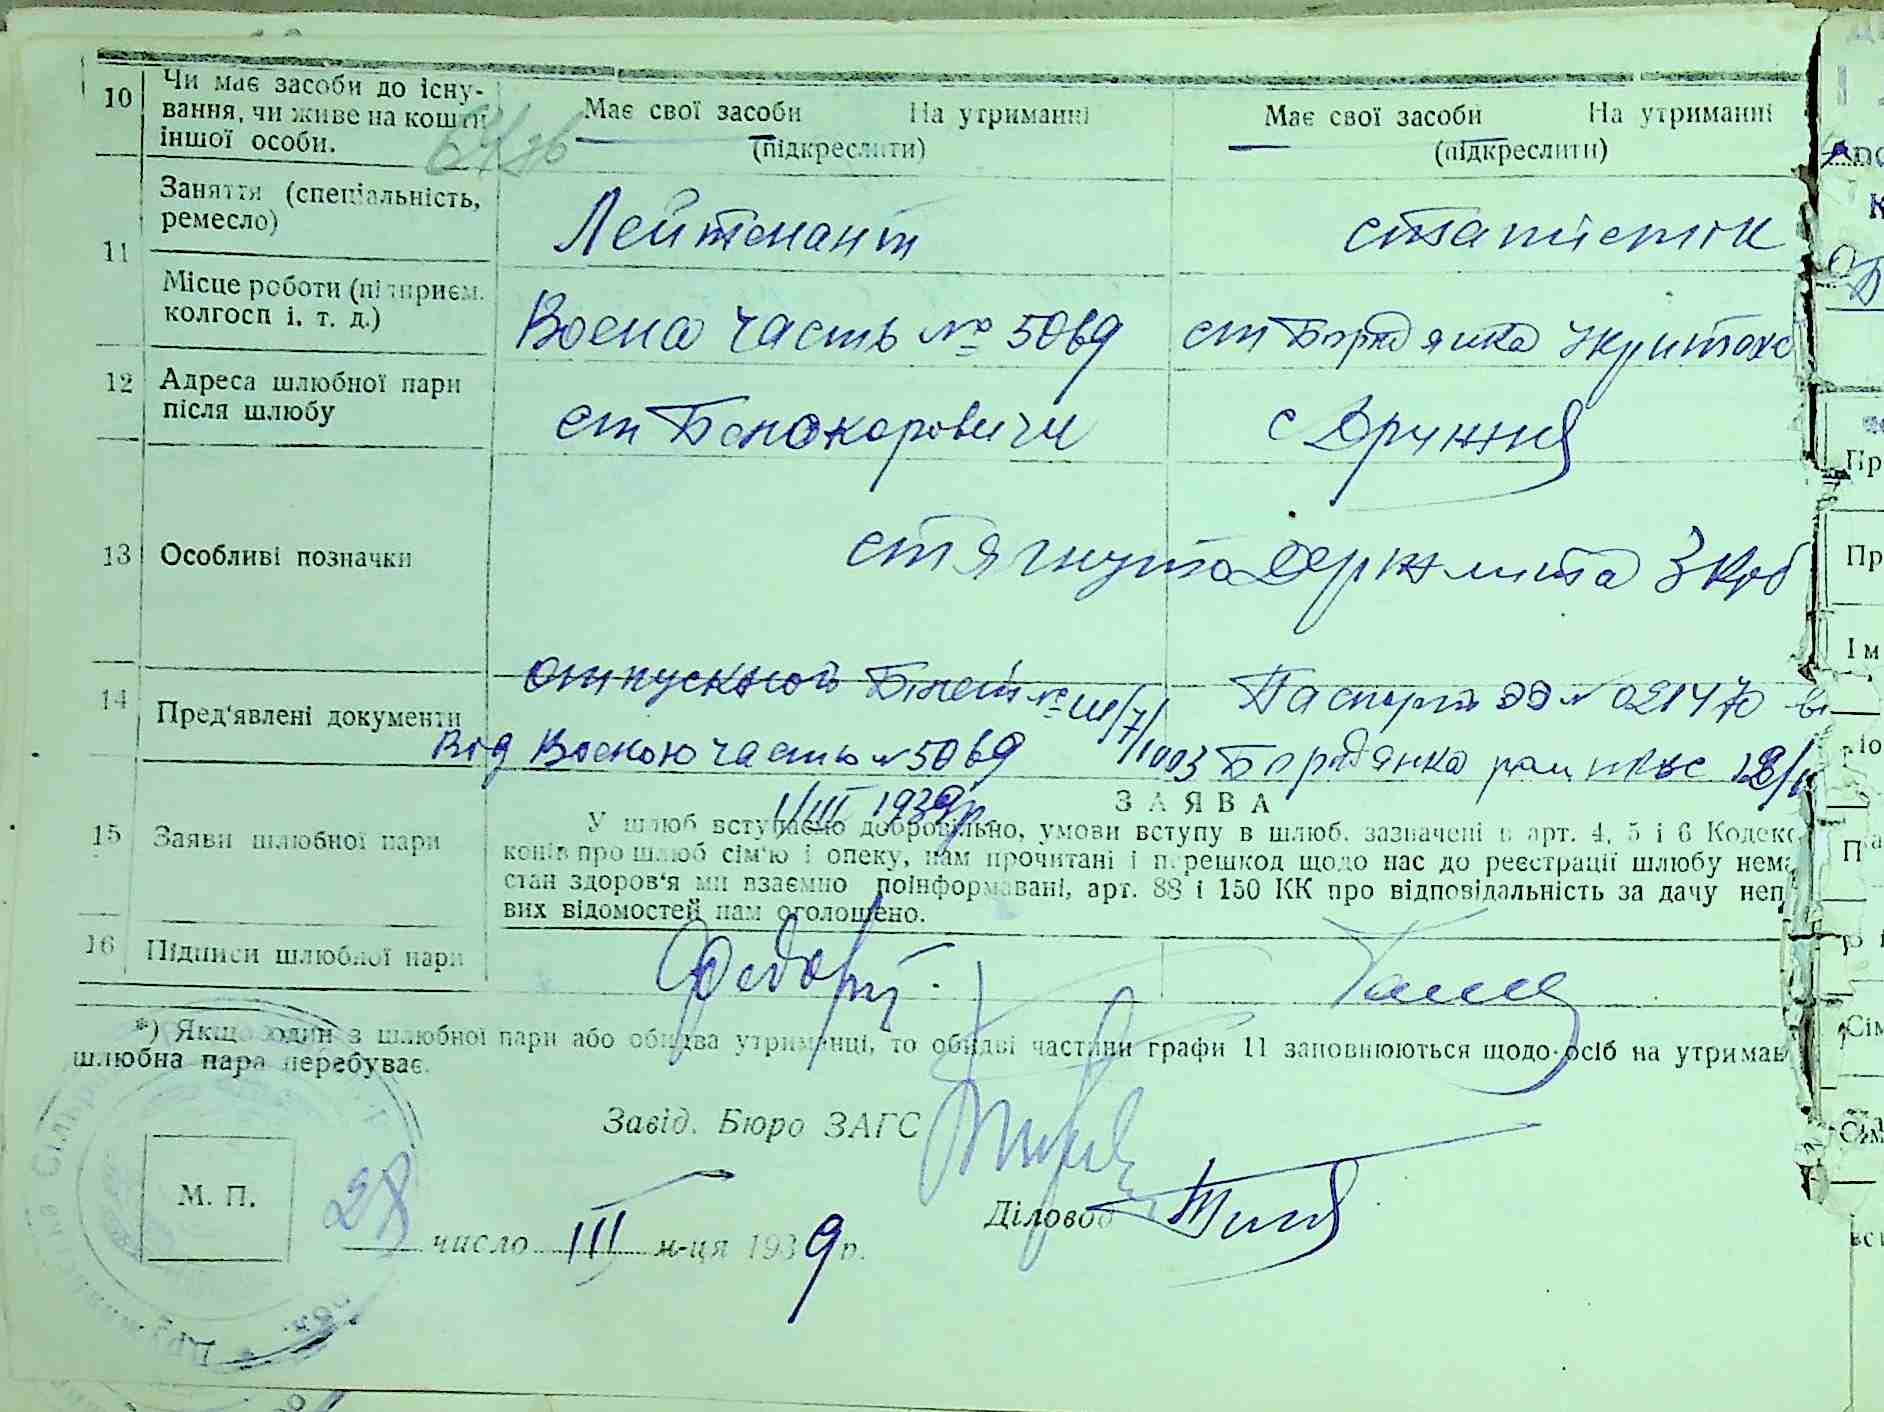 10 Чи має засоби до існу-
вання, чи живе на кошти
іншої особи.
Має свої засоби На утриманні
(підкреслити)
Має свої засоби На утриманні
(підкреслити)
11 Заняття (спеціальність,
ремесло)
Лейтенант
статістік
Місце роботи (підприєм.
колгосп і. т. д.)
Воєна часть № 5069
ст Бородянка
12 Адреса шлюбної пари
після шлюбу
ст Білокоровичи
с Дружня
13 Особливі позначки
стягнута Держмита 3 крб
14 Пред'явлені документи
отпускной Білет № III/7/1003
Від Воєною часть № 5069
1/III 1939р.
Паспорт ЭЭ № 021470
Бородянка
15 Заяви шлюбної пари
ЗАЯВА
У шлюб вступаємо добровільно, умови вступу в шлюб, зазначені в арт. 4, 5 і 6 Кодекс
конів про шлюб сім'ю і опеку, нам прочитані і перешкод щодо нас до реєстрації шлюбу нема
стан здоров'я ми взаємно поінформовані, арт. 88 і 150 КК про відповідальність за дачу неп
вих відомостей нам оголошено.
16 Підписи шлюбної пари
*) Якщо один з шлюбної пари або обидва утриманці, то обидві частини графи 11 заповнюються щодо осіб на утриман
шлюбна пара перебуває.
Завід. Бюро ЗАГС
М. П.
Діловод
28 число III м-ця 1939р.